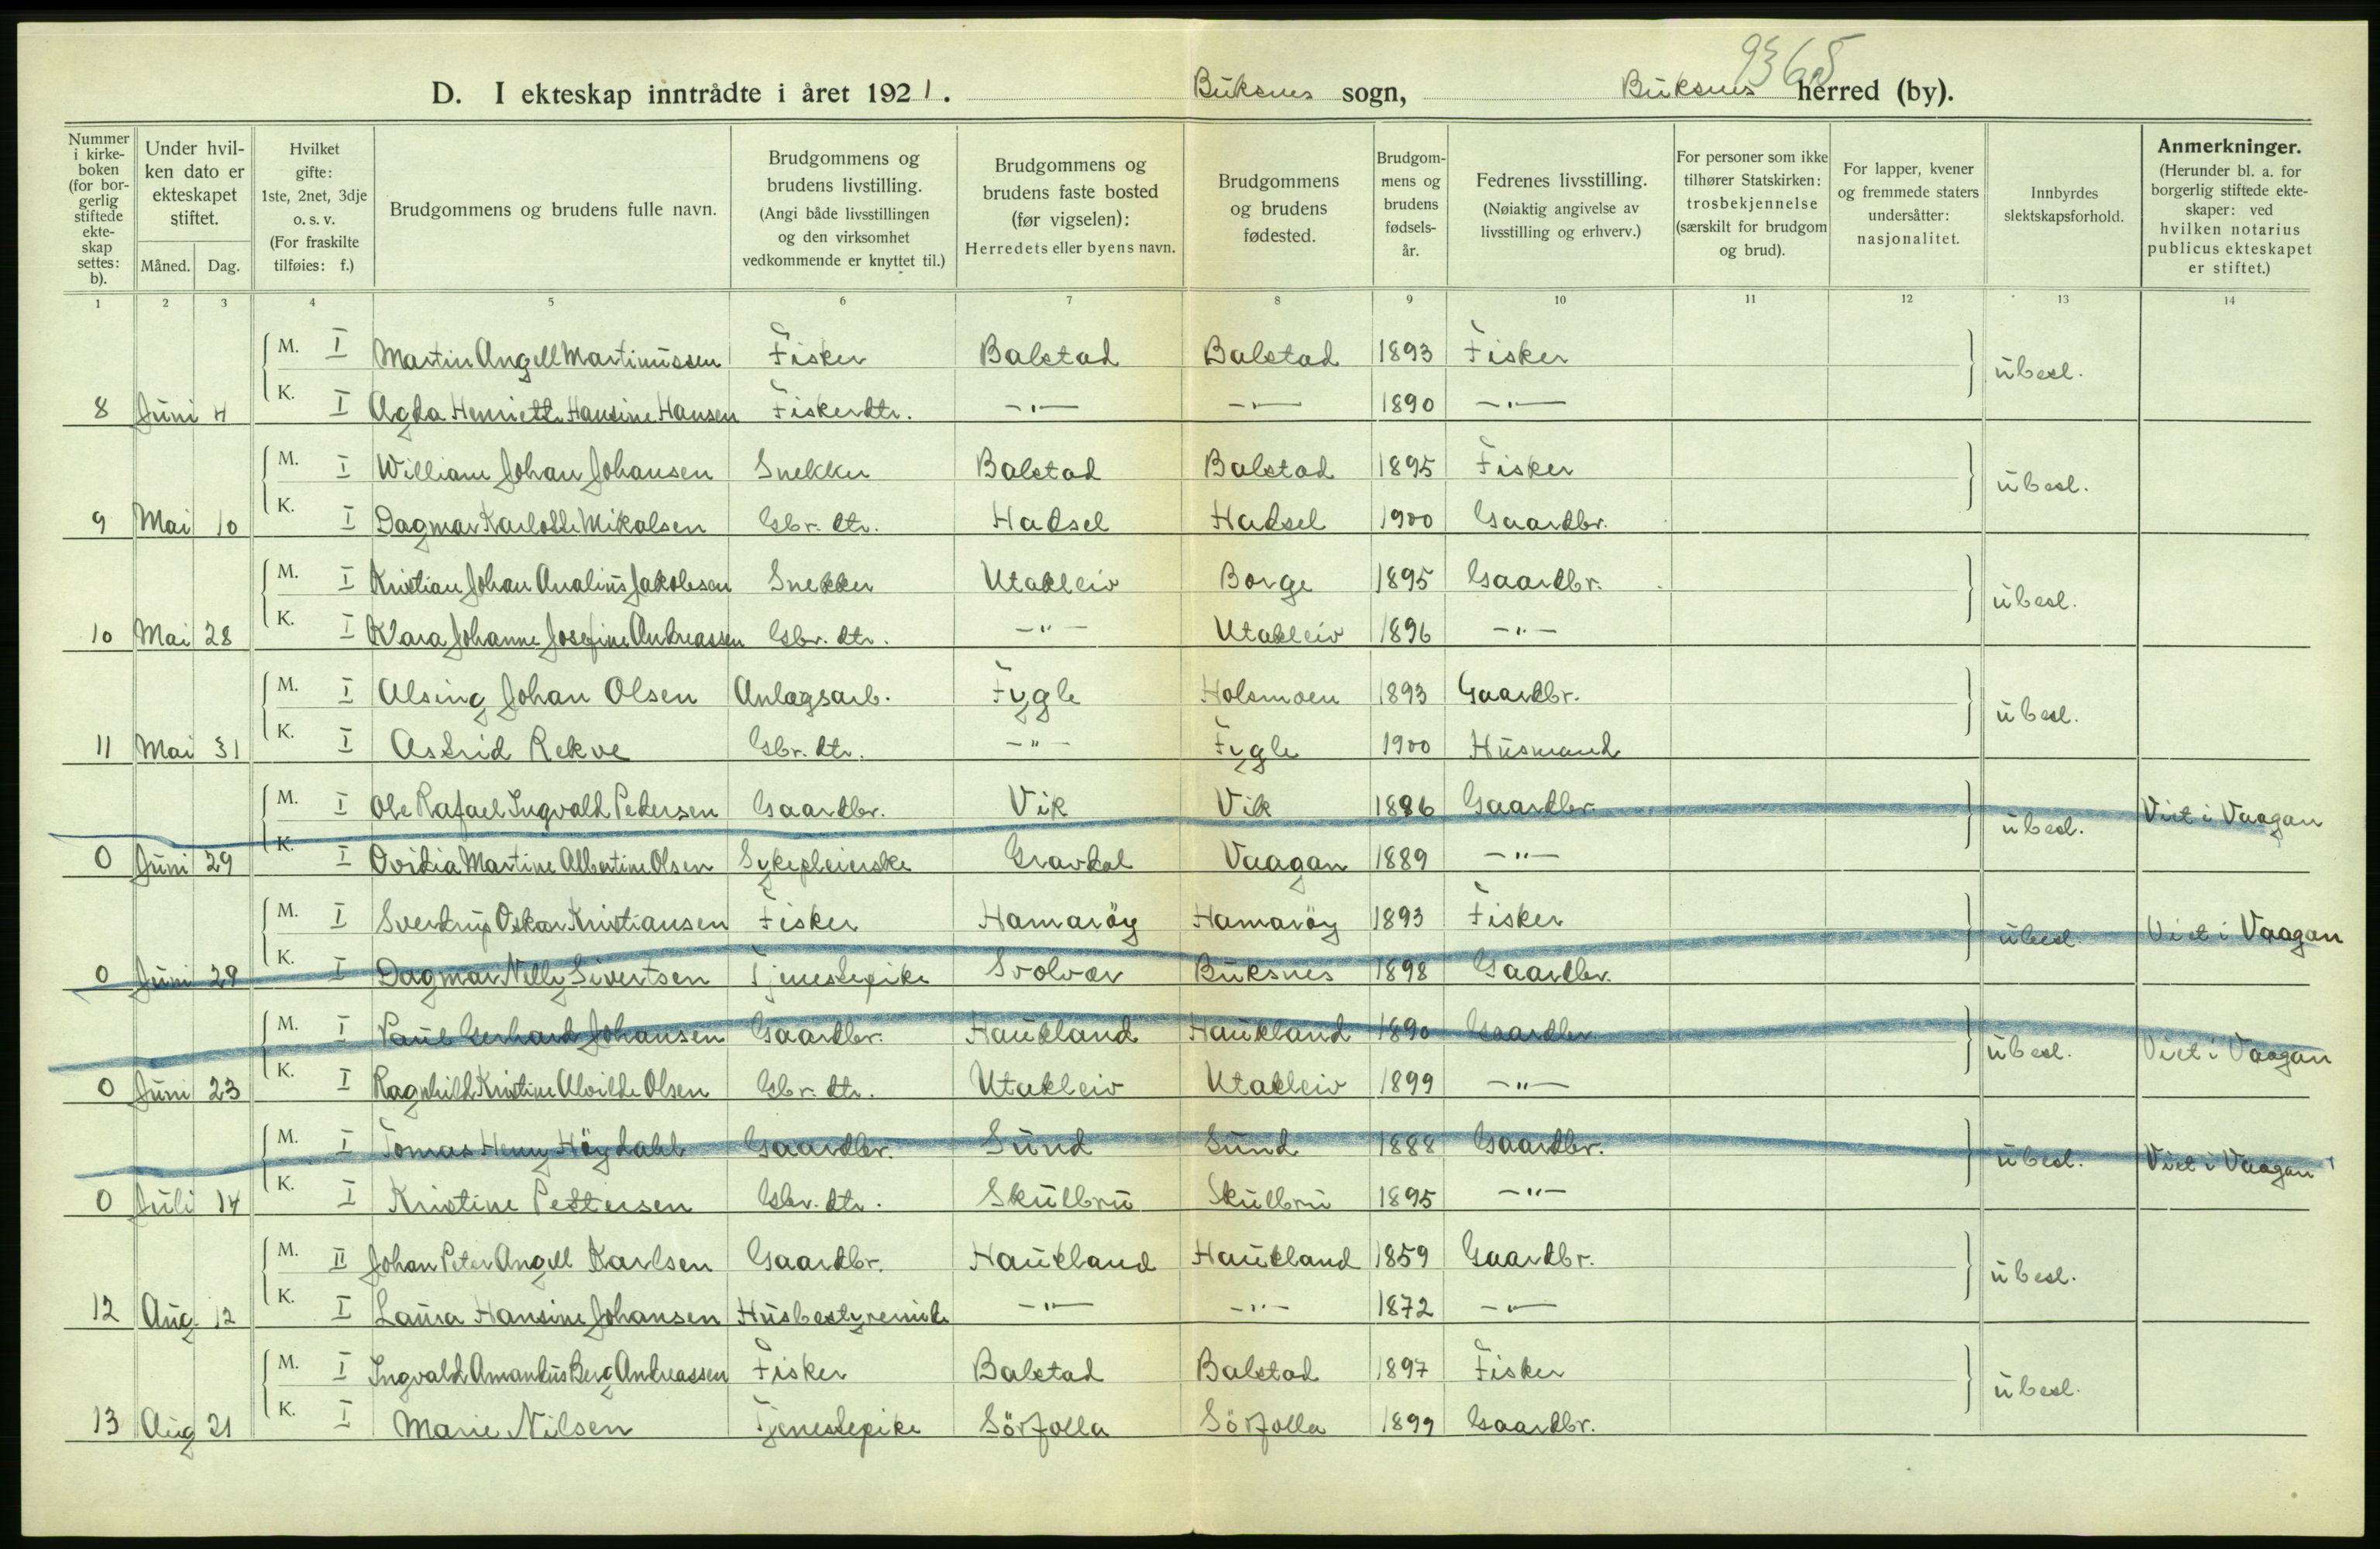 9365
D. I ekteskap inntrådte i året 1921. Buksnes sogn, Buksnes herred (by).
Nummer i kirke-boken (for bor-gerlig stiftede ekte-skap settes: b).
Under hvil-ken dato er ekteskapet stiftet.
Måned. Dag.
Hvilket gifte: 1ste, 2net, 3dje o. s. v. (For fraskilte tilføies: f.)
Brudgommens og brudens fulle navn.
Brudgommens og brudens livstilling. (Angi både livsstillingen og den virksomhet vedkommende er knyttet til.)
Brudgommens og brudens faste bosted (før vigselen): Herredets eller byens navn.
Brudgommens og brudens fødested.
Brudgom-mens og brudens fødsels-år.
Fedrenes livsstilling. (Nøiaktig angivelse av livsstilling og erhverv.)
For personer som ikke tilhører Statskirken: trosbekjennelse (særskilt for brudgom og brud).
For lapper, kvener og fremmede staters undersåtter: nasjonalitet.
Innbyrdes slektskapsforhold.
Anmerkninger. (Herunder bl. a. for borgerlig stiftede ekte-skaper: ved hvilken notarius publicus ekteskapet er stiftet.)
1 2 3 4 5 6 7 8 9 10 11 12 13 14
M. I Martin Angell Martinussen Fisker Balstad Balstad 1893 Fisker
ubesl.
8 Juni 4 K. I Agda Henriette Hansine Hansen Fiskerdtr. -"- -"- 1890 -"-
M. I William Johan Johansen Snekker Balstad Balstad 1895 Fisker
ubesl.
9 Mai 10 K. I Dagmar Karlotte Mikalsen Gbr. dtr. Hadsel Hadsel 1900 Gaardbr.
M. I Kristian Johan Analius Jakobsen Snekker Utakleiv Borge 1895 Gaardbr.
ubesl.
10 Mai 28 K. I Klara Johanne Josefine Andreassen Gbr. dtr. -"- Utakleiv 1896 -"-
M. I Alsing Johan Olsen Anlægsarb. Fygle Holsmoen 1893 Gaardbr.
ubesl.
11 Mai 31 K. I Astrid Rekve Gbr. dtr. -"- Fygle 1900 Husmand
M. I Ole Rafael Ingvald Pedersen Gaardbr. Vik Vik 1886 Gaardbr.
ubesl. Viet i Vaagan
0 Juni 29 K. I Ovidia Martine Albertine Olsen Sykepleierske Gravdal Vaagan 1889 -"-
M. I Sverdrup Oskar Kristiansen Fisker Hamaröy Hamaröy 1893 Fisker
ubesl. Viet i Vaagan
0 Juni 29 K. I Dagmar Nelly Sivertsen Tjenestepike Svolvær Buksnes 1898 Gaardbr.
M. I Paul Gerhard Johansen Gaardbr. Haukland Haukland 1890 Gaardbr
ubesl. Viet i Vaagan
0 Juni 23 K. I Ragnhild Kristine Alvilde Olsen Gbr. dtr. Utakleiv Utakleiv 1899 -"-
M. I Tomas Henry Höydahl Gaardbr. Sund Sund 1888 Gaardbr.
ubesl. Viet i Vaagan
0 Juli 14 K. I Kristine Pettersen Gbr. dtr. Skulbru Skulbru 1895 -"-
M. II Johan Peter Angell Karlsen Gaardbr. Haukland Haukland 1859 Gaardbr.
ubesl.
12 Aug 12 K. I Laura Hansine Johansen Husbestyrerinde -"- -"- 1872 -"-
M. I Ingvald Amandus Berg Andreassen Fisker Balstad Balstad 1897 Fisker
ubesl.
13 Aug 21 K. I Marie Nilsen Tjenestepike Sörfolla Sörfolla 1899 Gaardbr.